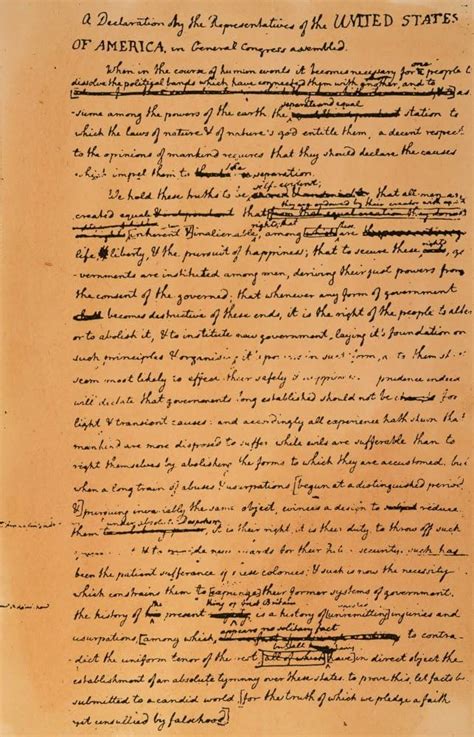 A Declaration by the Representatives of the UNITED STATES
OF AMERICA, in General Congress assembled.
When in the course of human events it becomes necessary for one people to
dissolve the political bands which have connected them with another, and to
as-
sume among the powers of the earth the separate and equal station to
which the laws of nature & of nature's god entitle them, a decent respect
to the opinions of mankind requires that they should declare the causes
which impel them to the separation.
We hold these truths to be self-evident; that all men are
created equal that they are endowed by their creator with
rights; that
[inherent &] inalienable among these are
life, liberty, & the pursuit of happiness; that to secure these rights, go-
vernments are instituted among men, deriving their just powers from
the consent of the governed; that whenever any form of government
becomes destructive of these ends, it is the right of the people to alter
or to abolish it, & to institute new government, laying it's foundation on
such principles & organising it's powers in such form, as to them shall
seem most likely to effect their safety & happiness. prudence indeed
will dictate that governments long established should not be changed for
light & transient causes: and accordingly all experience hath shewn that
mankind are more disposed to suffer while evils are sufferable than to
right themselves by abolishing the forms to which they are accustomed. but
when a long train of abuses & usurpations [begun at a distinguished period
&] pursuing invariably the same object, evinces a design to reduce
them under absolute Despotism, it is their right, it is their duty, to throw off such
& to provide new guards for their future security. such has
been the patient sufferance of these colonies; & such is now the necessity
which constrains them to [expunge] their former systems of government.
the history of the present King of Great Britain is a history of [unremitting] injuries and
usurpations, [among which appears no solitary fact to contra-
dict the uniform tenor of the rest but all have] in direct object the
establishment of an absolute tyranny over these states. to prove this, let facts be
submitted to a candid world [for the truth of which we pledge a faith
yet unsullied by falsehood]